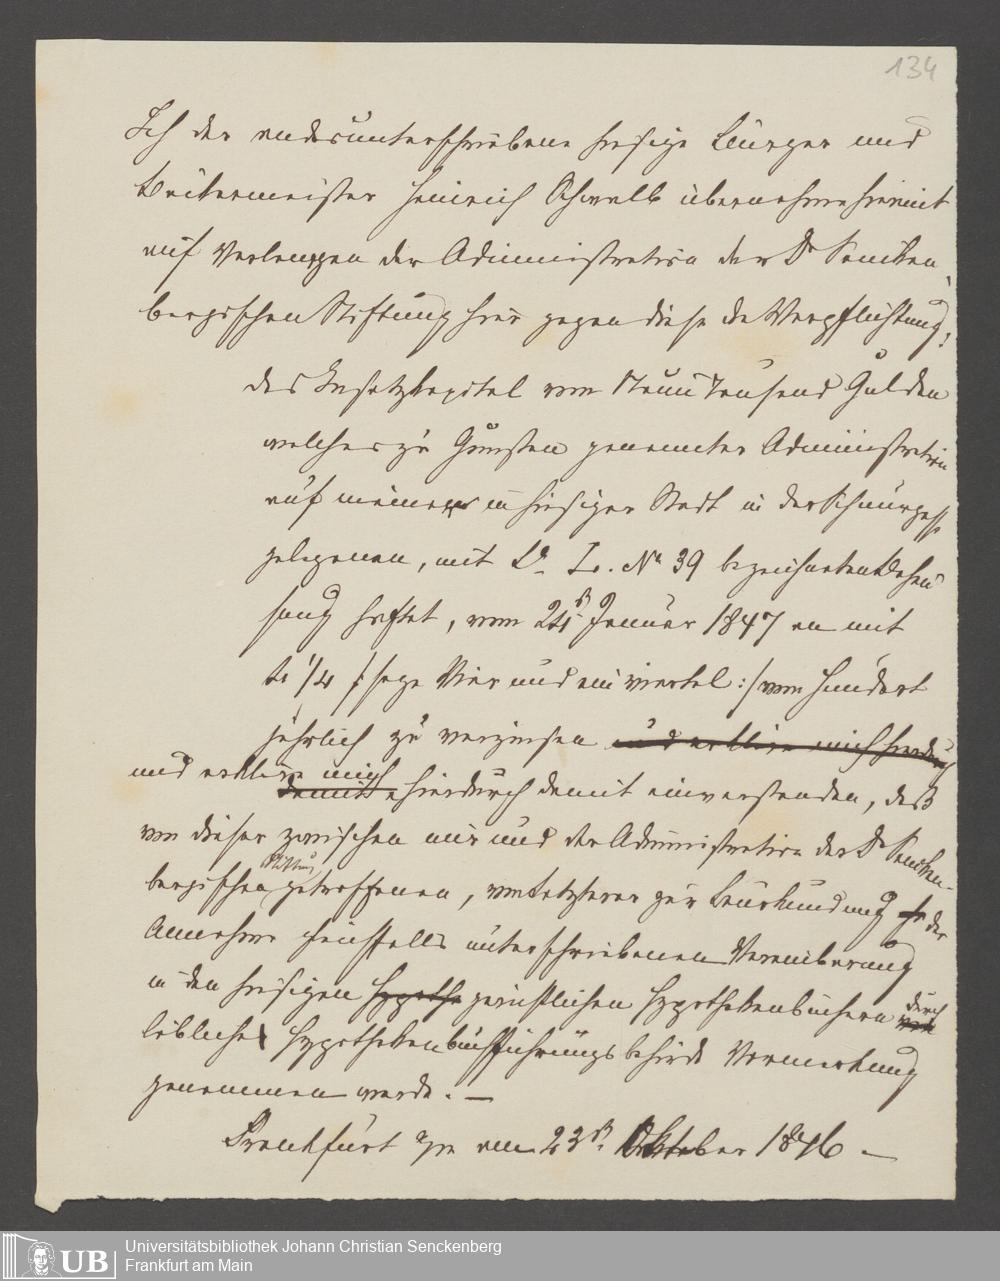 134
Ich der endesunterschriebene hiesige Bürger und
Bäckermeister Heinrich Schwalb übernehme hiermit
auf Verlangen der Administration der Dr Sencken-
bergischen Stiftung hier gegen diese die Verpflichtung,
das Insatzkapital von Neun Tausend Gulden
welches zu Gunsten genannter Administration
auf meiner in hiesiger Stadt in der Schnurgasse
gelegenen, mit Lr. L. No 39 bezeichneten Behau-
sung haftet, vom 24n Januar 1847 an mit
4 1/4 /: sage Vier und ein viertel :/ vom Hundert
jährlich zu verzinsen und erkläre mich hierdurch
und erkläre mich
damit hierdurch damit einverstanden, daß
von dieser zwischen mir und der Administration der Dr Sencken-
bergischen Stiftung getroffenen, von Letzterer zur Beurkundung der
Annahme gleichfalls unterschriebenen Vereinbarung
in den hiesigen Hypothe gerichtlichen Hypothekenbüchern durch
löbliche Hypothekenbuchführungsbehörde Vormerkung
genommen werde. —
Frankfurt a/m am 23n. Oktober 1846 —
Universitätsbibliothek Johann Christian Senckenberg
Frankfurt am Main
UB